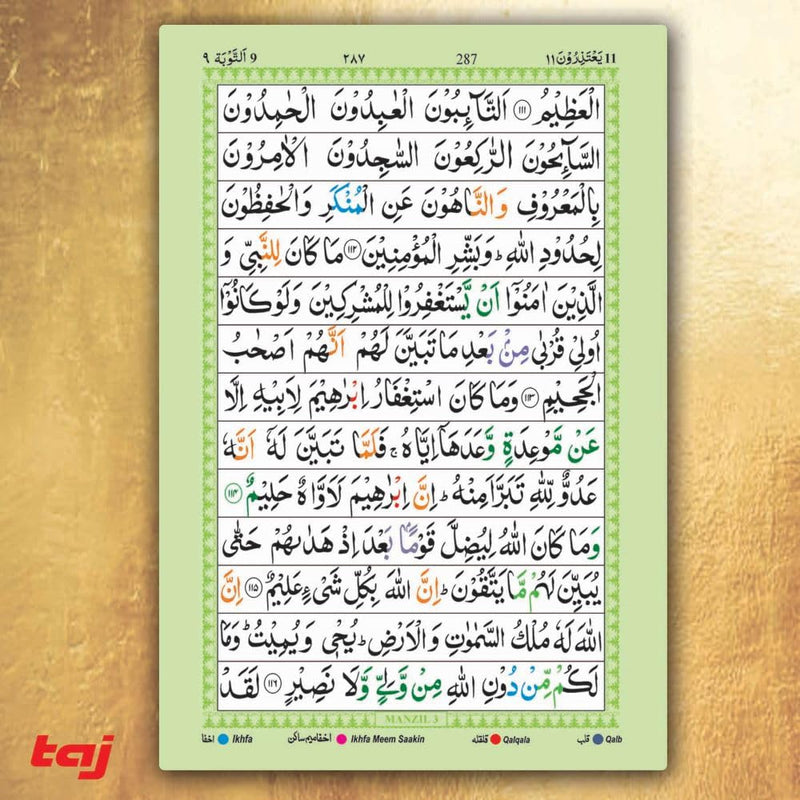 11 يَعْتَذِرُوْنَ ١١ 287 ٢٨٧ 9 اَلتَّوْبَة ٩
الْعَظِيْمُ ﴿١١١﴾ اَلتَّآئِبُوْنَ الْعٰبِدُوْنَ الْحٰمِدُوْنَ
السَّآئِحُوْنَ الرّٰكِعُوْنَ السّٰجِدُوْنَ الْاٰمِرُوْنَ
بِالْمَعْرُوْفِ وَالنَّاهُوْنَ عَنِ الْمُنْكَرِ وَالْحٰفِظُوْنَ
لِحُدُوْدِ اللّٰهِ ؕ وَبَشِّرِ الْمُؤْمِنِيْنَ ﴿١١٢﴾ مَا كَانَ لِلنَّبِيِّ وَ
الَّذِيْنَ اٰمَنُوْۤا اَنْ يَّسْتَغْفِرُوْا لِلْمُشْرِكِيْنَ وَلَوْ كَانُوْۤا
اُولِيْ قُرْبٰى مِنْۢ بَعْدِ مَا تَبَيَّنَ لَهُمْ اَنَّهُمْ اَصْحٰبُ
الْجَحِيْمِ ﴿١١٣﴾ وَمَا كَانَ اسْتِغْفَارُ اِبْرٰهِيْمَ لِاَبِيْهِ اِلَّا
عَنْ مَّوْعِدَةٍ وَّعَدَهَاۤ اِيَّاهُ ۚ فَلَمَّا تَبَيَّنَ لَهٗۤ اَنَّهٗ
عَدُوٌّ لِّلّٰهِ تَبَرَّاَ مِنْهُ ؕ اِنَّ اِبْرٰهِيْمَ لَاَوَّاهٌ حَلِيْمٌ ﴿١١٤﴾
وَمَا كَانَ اللّٰهُ لِيُضِلَّ قَوْمًاۢ بَعْدَ اِذْ هَدٰىهُمْ حَتّٰى
يُبَيِّنَ لَهُمْ مَّا يَتَّقُوْنَ ؕ اِنَّ اللّٰهَ بِكُلِّ شَيْءٍ عَلِيْمٌ ﴿١١٥﴾ اِنَّ
اللّٰهَ لَهٗ مُلْكُ السَّمٰوٰتِ وَالْاَرْضِ ؕ يُحْيٖ وَيُمِيْتُ ؕ وَمَا
لَكُمْ مِّنْ دُوْنِ اللّٰهِ مِنْ وَّلِيٍّ وَّلَا نَصِيْرٍ ﴿١١٦﴾ لَقَدْ
MANZIL 3
اخفا Ikhfa اخفا میم ساکن Ikhfa Meem Saakin قلقله Qalqala قلب Qalb
taj